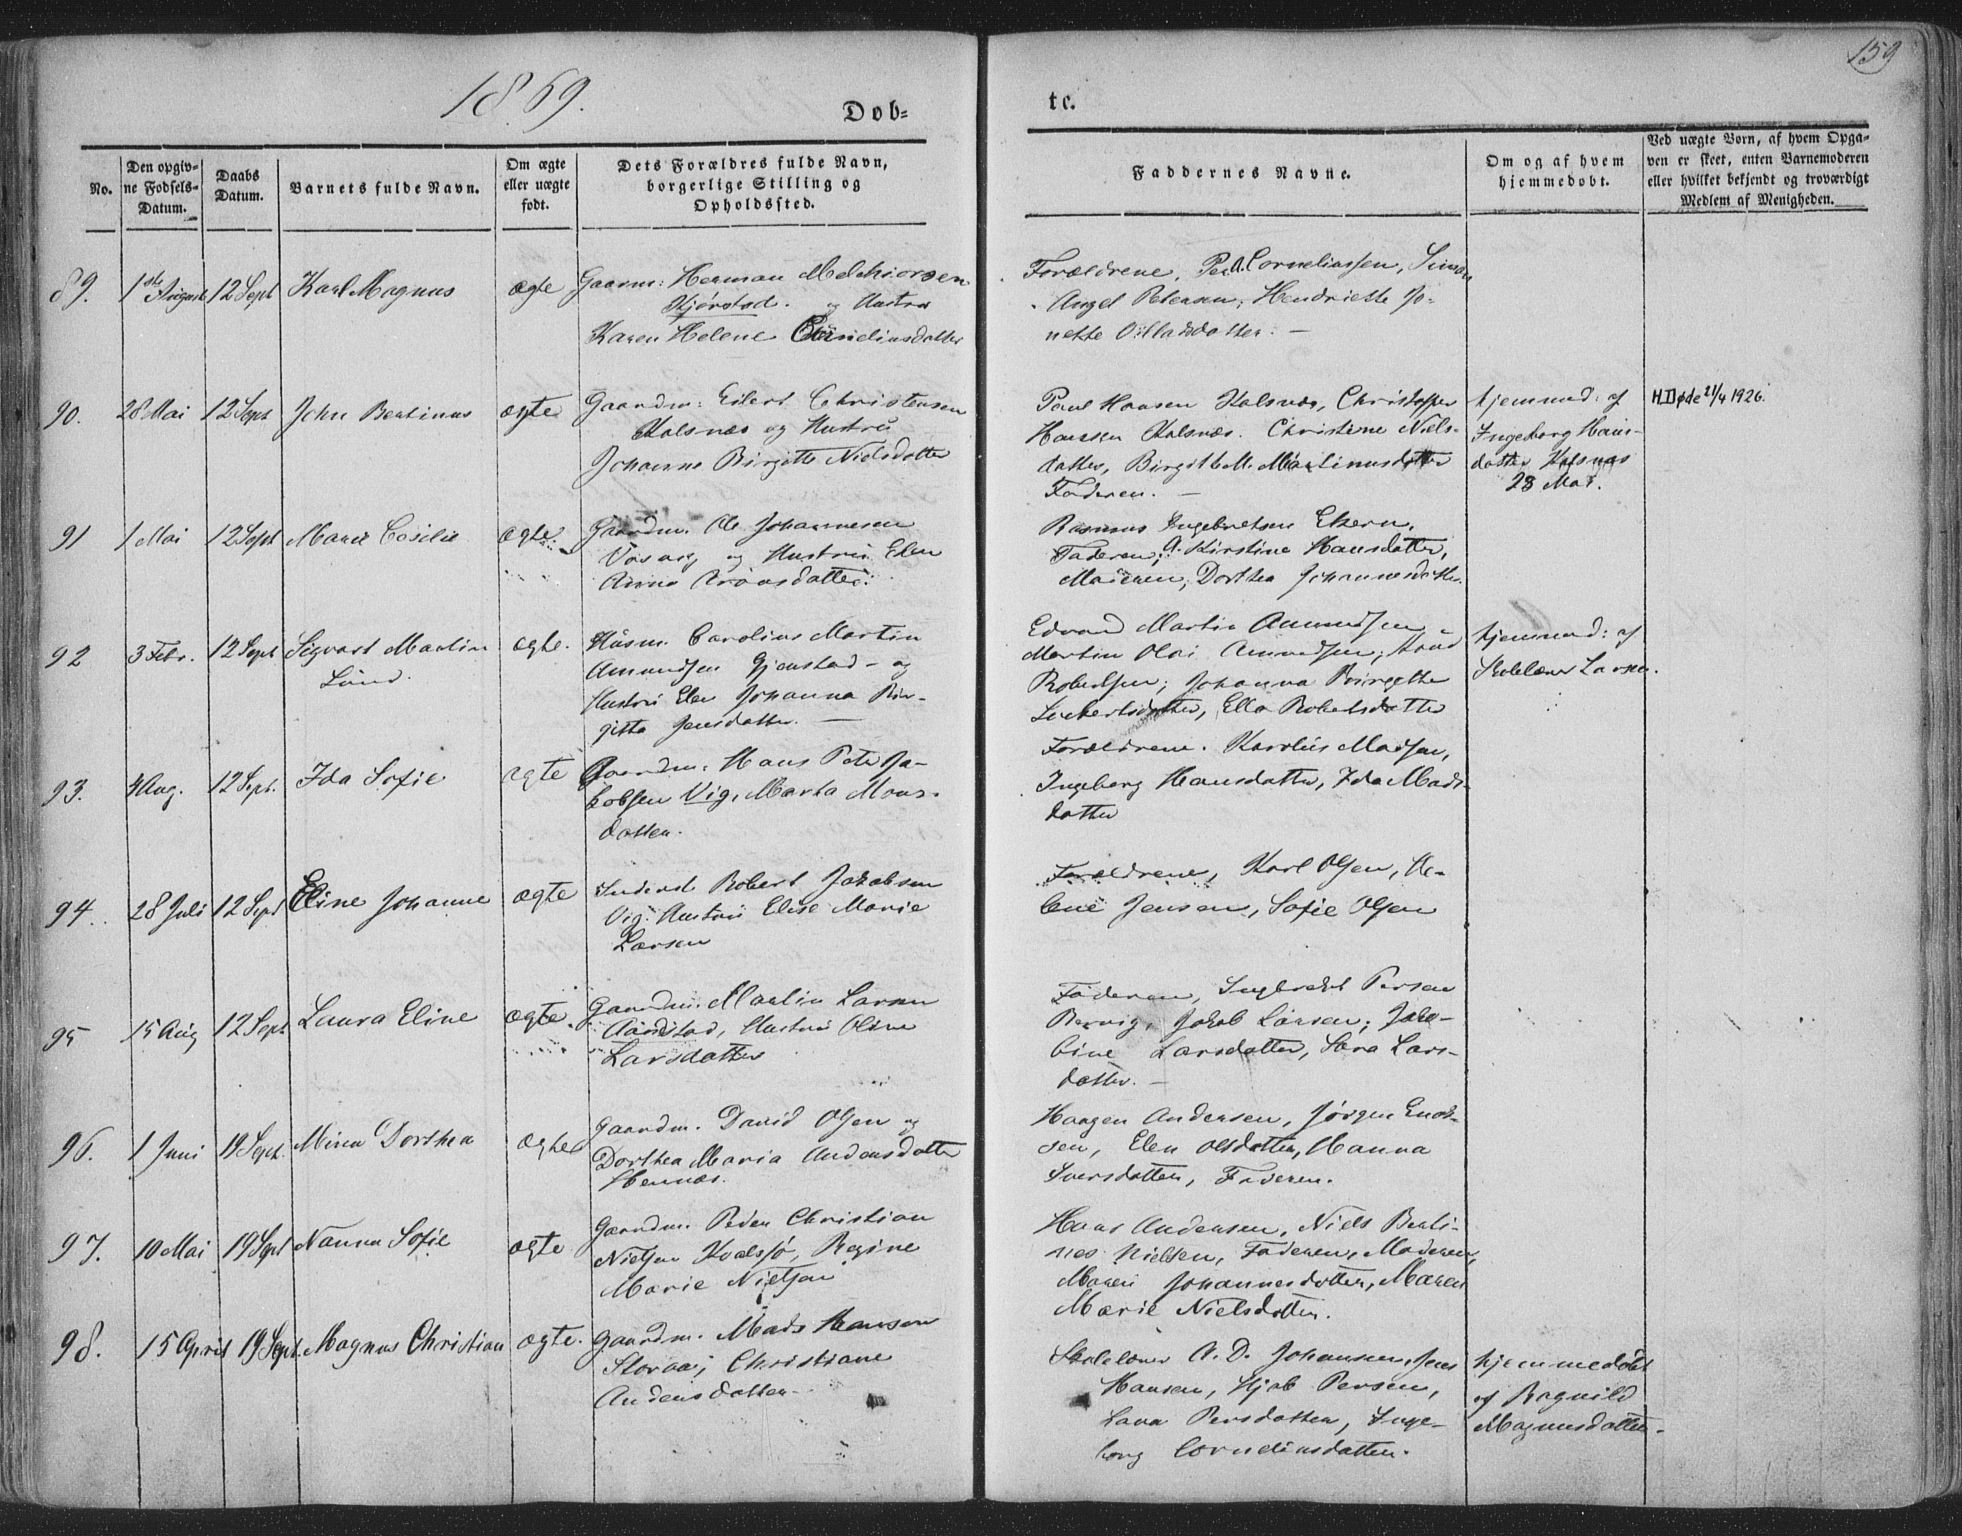 159
1869.
Døb=
te.
No.
Den opgiv-
ne Fødsels-
Datum.
Daabs
Datum.
Barnets fulde Navn.
Om ægte
eller uægte
født.
Dets Forældres fulde Navn,
borgerlige Stilling og
Opholdssted.
Faddernes Navne.
Om og af hvem
hjemmedøbt.
Ved uægte Børn, af hvem Opga-
ven er skeet, enten Barnemoderen
eller hvilket bekjendt og troværdigt
Medlem af Menigheden.
89. 1ste August 12 Sept Karl Magnus ægte
Gaarm: Herman Melchiorsen
og Hustru
Karen Helene
Forældrene, Corneliussen,
Angel Petersen, Hendriette Jo-
nette
90. 28 Mai 12 Sept John Bertinus ægte
Gaardm: Eilert Christensen
Kalsnæs og Hustru
Johanna Birgitte Nielsdatter
Paul Hansen Kalsnæs, Christopher
Hanssen Kalsnæs. Christine Niels-
datter, Birgitte M. Martinusdatter
Faderen. —
hjemmed: af
Ingeborg Hans-
datter Kalsnæs
28 Mai.
H. Døde 21/4 1926.
91 1 Mai 12 Sept Maren Cesilie ægte.
Gaardm. Ole Johannesen
og Hustru Elen
Anna Aronsdatter.
Rasmus Ingebretsen Ekern,
Faderen, A. Kirstine Hansdatter,
Moderen, Dorthea Johannesdatter.
92 3 Febr. 12 Sept Sigvart Martin
Lund.
ægte.
Husm. Carolius Martin
Amundsen Gjenstad – og
Hustru Elen Johanna Bir-
gitta Jensdatter. —
Edvard Martin Amundsen
Martin Olai Amundsen,
Robertsen; Johanna Birgitte
Ella Robertsdatter
hjemmed: af
Skolelærer Larsen.
93. 4 Aug. 12 Sept. Ida Sofie ægte
Gaardm: Hans Peter Ja-
kobsen Vig, Marta Mons-
datter.
Forældrene. Karolius Madsen,
Ingeborg Hansdatter, Ida Mads-
datter
94. 28 Juli 12 Sept Eline Johanne ægte
Inderst Robert Jakobsen
Vig. Hustru Elise Marie
Larsen
Forældrene, Karl Olsen, He-
lene Jensen, Sofie Olsen
95 15 Aug 12 Sept. Laura Eline ægte.
Gaardm. Martin Larsen
Hustru Oline
Larsdatter
Faderen, Ingbrekt Persen
Bervig, Jakob Larsen, Jako-
bine Larsdatter, Sara Lars-
datter. —
96. 1 Juni 19 Sept. Mina Dorthea ægte
Gaardm. David Olsen og
Dorthea Maria Andersdatter
Hennæs.
Haagen Andersen, Jørgen Enok-
sen, Elen Olsdatter, Hanna
Iversdatter, Faderen.
97. 10 Mai 19 Sept Nanna Sofie ægte
Gaardm. Peder Christian
Nielsen Kvalsjø, Regine
Marie Nielsen
Hans Andersen, Niels Berti-
nes Nielsen, Faderen, Moderen,
Maren Johannesdatter, Maren
Marie Nielsdatter.
98. 15 April 19 Sept. Magnus Christian ægte.
Gaardm. Mads Hansen
Storaa; Christiane
Andersdatter
Skolelærer A. D. Johansen, Jens
Hansen, Persen,
Lava Persdatter, Inge-
borg Corneliusdatter.
hjemmedøbt
af Ragnild
Magnusdatter.